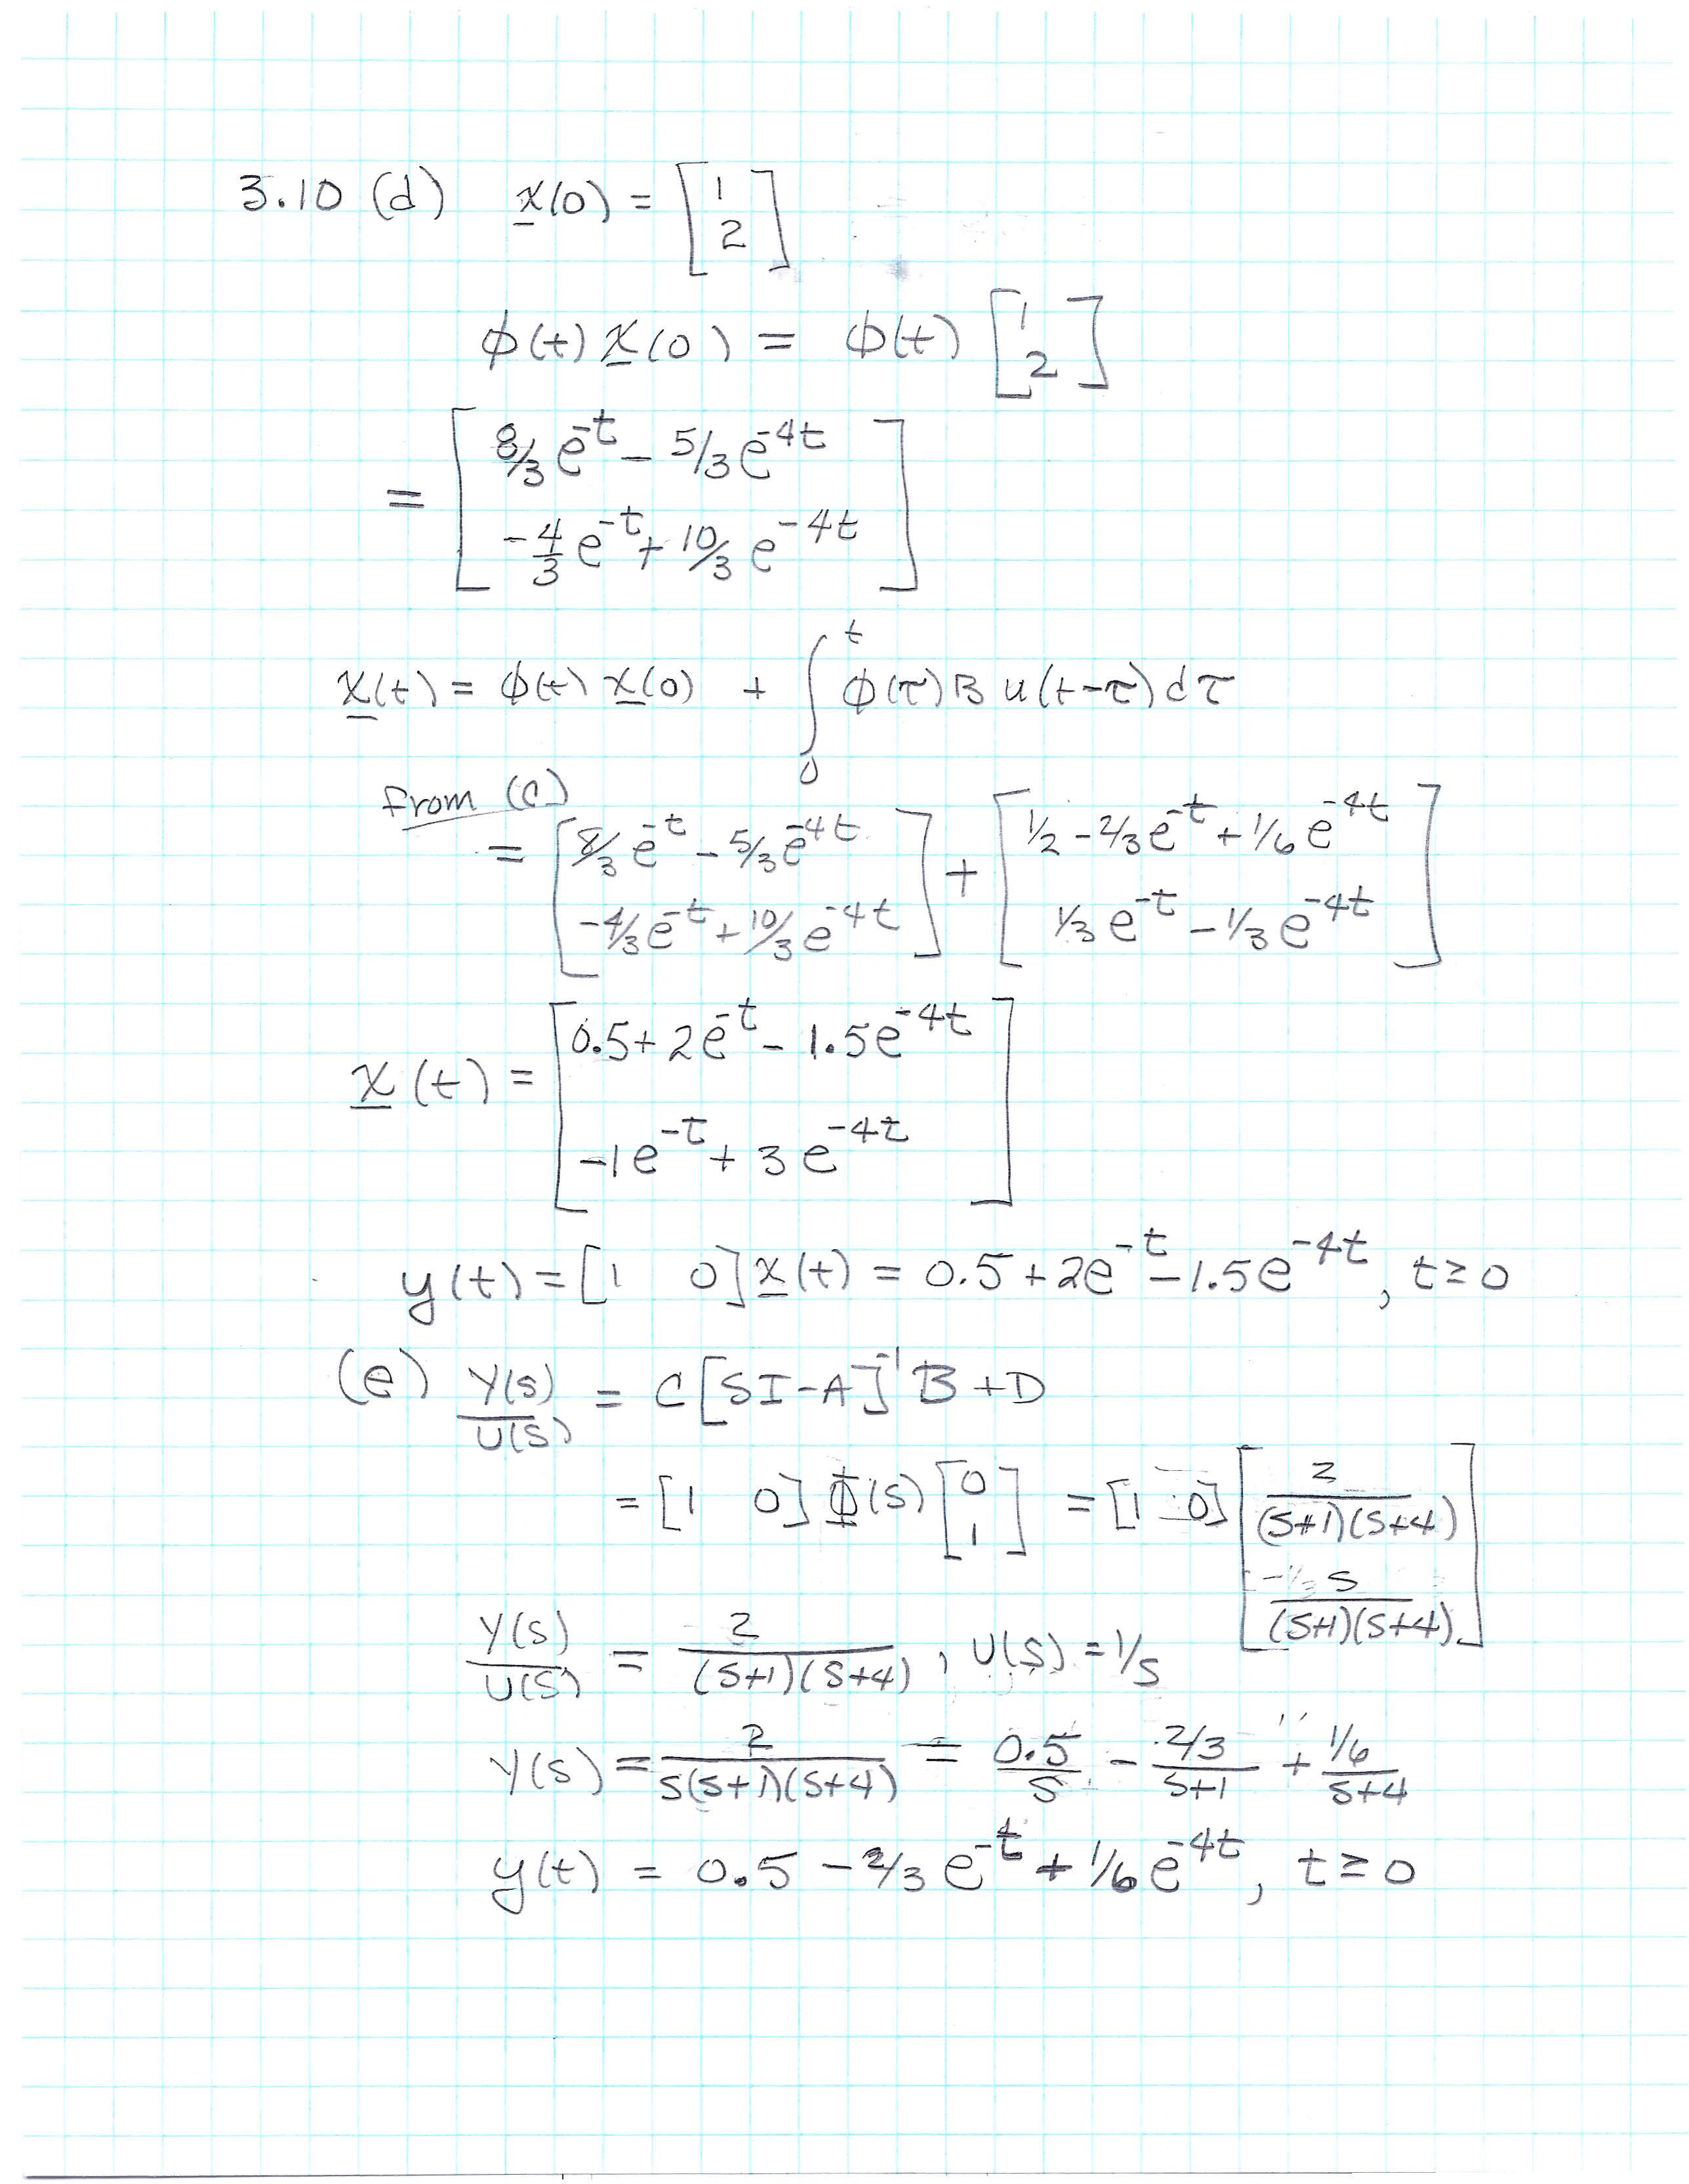 3.10 (d) x(0) = [1; 2]
φ(t) x(0) = φ(t) [1; 2]
= [8/3 e^-t - 5/3 e^-4t; -4/3 e^-t + 10/3 e^-4t]
x(t) = φ(t) x(0) + ∫_0^t φ(τ) B u(t-τ) dτ
from (c)
= [8/3 e^-t - 5/3 e^-4t; -4/3 e^-t + 10/3 e^-4t] + [1/2 - 2/3 e^-t + 1/6 e^-4t; 1/3 e^-t - 1/3 e^-4t]
x(t) = [0.5 + 2e^-t - 1.5e^-4t; -1e^-t + 3e^-4t]
y(t) = [1 0] x(t) = 0.5 + 2e^-t - 1.5e^-4t, t ≥ 0
(e) Y(s)/U(s) = C[SI-A]^-1 B + D
= [1 0] Φ(s) [0; 1] = [1 0] [2/((s+1)(s+4)); s/((s+1)(s+4))]
Y(s)/U(s) = 2/((s+1)(s+4)), U(s) = 1/s
Y(s) = 2/(s(s+1)(s+4)) = 0.5/s - (2/3)/(s+1) + (1/6)/(s+4)
y(t) = 0.5 - 2/3 e^-t + 1/6 e^-4t, t ≥ 0